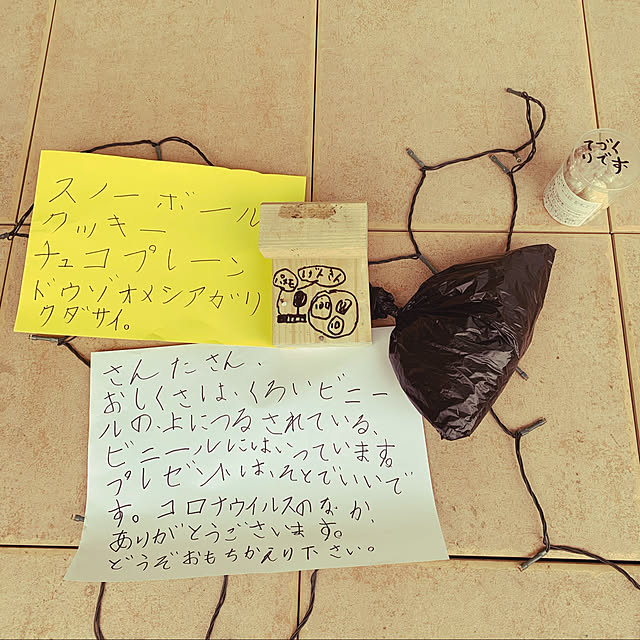 スノーボール
クッキー
チュコプレーン
ドウゾオメシアガリ
クダサイ。
てづく
りです
100
10
さんたさん、
おしくさは、くろいビニー
ルの、上につるされている、
ビニールにはいっています。
プレゼントは、そとでいいで
す。コロナウイルスのなか、
ありがとうございます。
どうぞおもちかえり下さい。